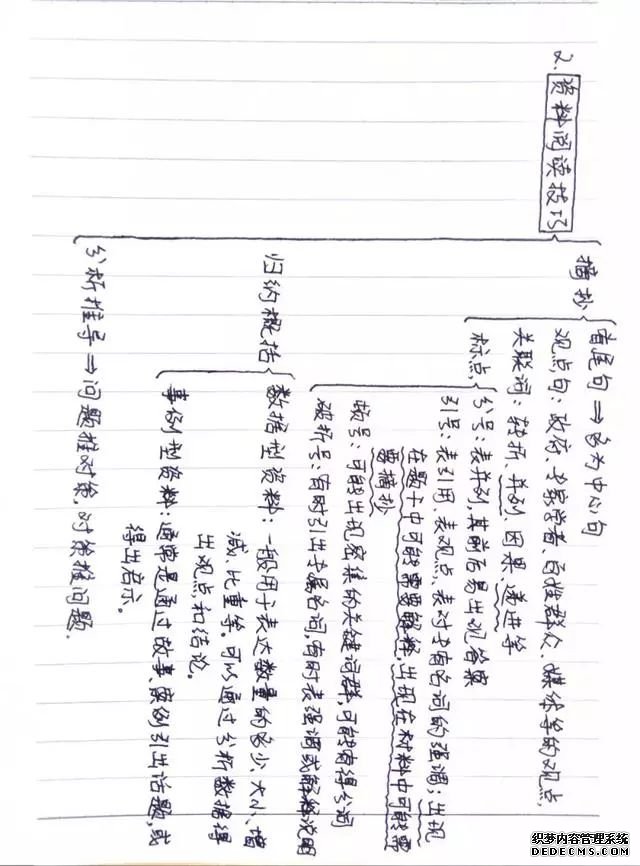 2. 资料阅读技巧
摘抄
首尾句 ⇒ 多为中心句
观点句：政府、专家学者、百姓群众、媒体等的观点,
关联词：转折、并列、因果、递进等
标点
分号：表并列,其前后易出现答案
引号：表引用、表观点、表对专有名词的强调；出现
在题干中可能需要解释,出现在材料中可能需
要摘抄
顿号：可能出现密集的关键词群,可能有得分词
破折号：有时引出专属名词,有时表强调或解释说明
归纳概括
数据型资料：一般用于表达数量的多少、大小、增
减、比重等。可以通过分析数据得
出观点和结论。
事例型资料：通常是通过故事、案例引出话题,或
得出启示。
分析推导 ⇒ 问题推对策,对策推问题.
织梦内容管理系统
DEDECMS.COM